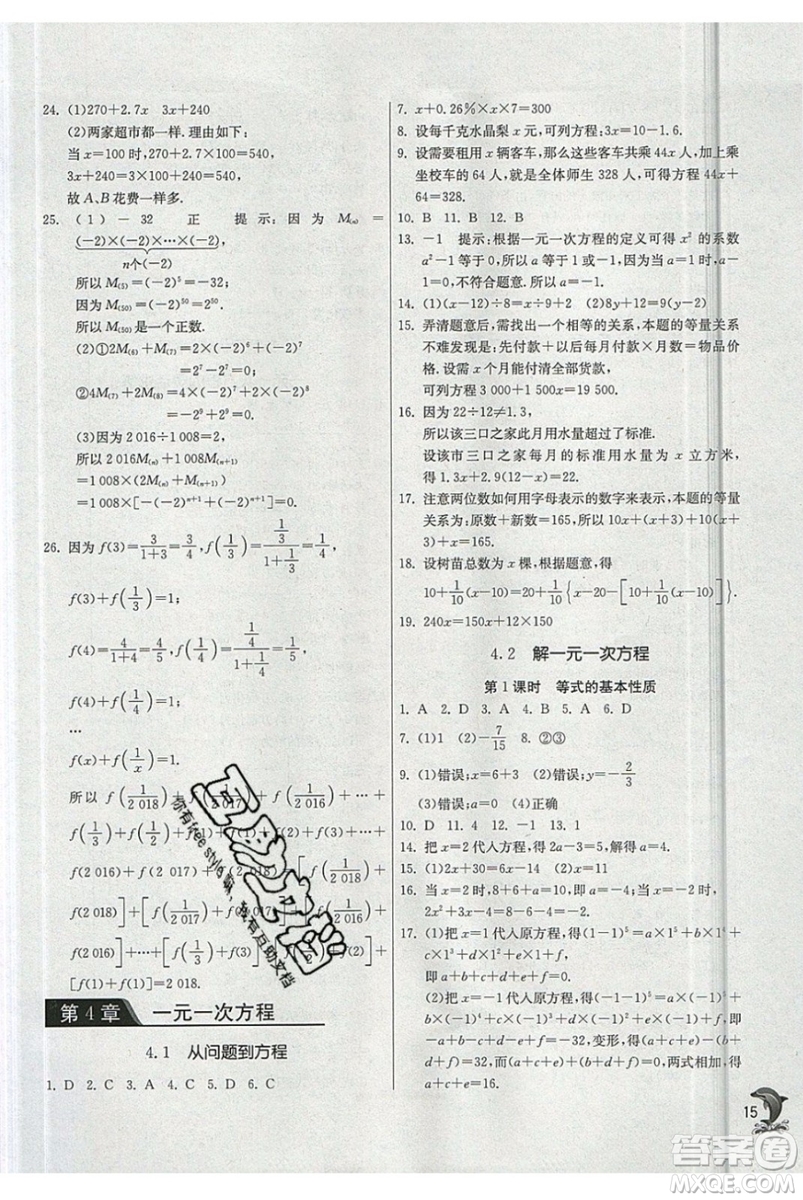 24. (1)270+2.7x　3x+240
(2)两家超市都一样. 理由如下:
当 x=100 时, 270+2.7x=540,
3x+240=3×100+240=540,
故 A、B 花费一样多.
25. (1) －32　正　提示:因为 M₍ₙ₎ =
(-2)×(-2)×…×(-2),
n个(-2)
所以 M₍₅₎=(-2)⁵=-32;
因为 M₍₅₀₎=(-2)⁵⁰=2⁵⁰.
所以 M₍₅₀₎是一个正数.
(2)①2M₍₆₎+M₍₇₎=2×(-2)⁶+(-2)⁷
=2⁷-2⁷=0;
②4M₍₇₎+2M₍₈₎=4×(-2)⁷+2×(-2)⁸
=-2⁹+2⁹=0.
(3)因为 2 016÷1 008=2,
所以 2 016M₍ₙ₎+1 008M₍ₙ₊₁₎
=1 008(2M₍ₙ₎+M₍ₙ₊₁₎)
=1 008×[-(-2)ⁿ⁺¹+(-2)ⁿ⁺¹]=0.
26. 因为 f(3)=3/(1+3)=3/4, f(1/3)=(1/3)/(1+1/3)=1/4,
f(3)+f(1/3)=1;
f(4)=4/(1+4)=4/5, f(1/4)=(1/4)/(1+1/4)=1/5,
f(4)+f(1/4)=1;
…
f(x)+f(1/x)=1.
所以 f(1/2 018)+f(1/2 017)+f(1/2 016)+…+
f(1/3)+f(1/2)+f(1)+f(2)+f(3)+…+
f(2 016)+f(2 017)+f(2 018)=[f(1/2 018)+
f(2 018)]+[f(1/2 017)+f(2 017)]+[f(1/2 016)+
f(2 016)]+…+[f(1/3)+f(3)]+[f(1/2)+f(2)]+
[f(1)+f(1)]=2 018.
第 4 章　一元一次方程
4.1　从问题到方程
1. D　2. C　3. A　4. C　5. D　6. C
7. x+0.26%×x×7=300
8. 设每千克水晶梨 x 元,可列方程:3x=10-1.6.
9. 设需要租用 x 辆客车,那么这些客车共乘 44x 人,加上乘
坐校车的 64 人,就是全体师生 328 人,可列方程为 44x+
64=328.
10. B　11. B　12. B
13. -1　提示:根据一元一次方程的定义可得 x² 的系数
a²-1 等于 0,所以 a=1 或 a=-1,而当 a=1 时,x 的系数
是 0,不符合题意.所以 a=-1.
14. (1)(x-9)÷8=x÷9+2　(2)8y+4=9(y-2)
15. 弄清题意后,需找出一个相等的关系,本题的等量关系
不难发现是:先付款+以后每月付款×月数=物品价
格.设需 x 个月能付清全部货款,
可列方程 3 000+1 500x=19 500.
16. 因为 22÷12≠1.3,
所以该三口之家此月用水量超过了标准.
设该市三口之家每月的标准用水量为 x 立方米,
得 1.3x+2.9(12-x)=22.
17. 注意两位数如何用字母表示的数字来表示,本题的等量
关系为:原数+新数=165,所以 10x+(x+1)+10(x+
1)+x=165.
18. 设树苗总数为 x 棵,根据题意,得
10+1/10(x-10)=20+1/10{x-20-[10+1/10(x-10)]}.
19. 240x=150x+12×150
4.2　解一元一次方程
第 1 课时　等式的基本性质
1. A　2. D　3. A　4. B　5. A　6. D
7. (1)1　(2)-7/15　8. ②③
9. (1)错误;x=6+3　(2)错误;y=-2/3
(3)错误;a=0　(4)正确
10. D　11. 4　12. -1　13. 1
14. 把 x=2 代入方程,得 2a-3=5,解得 a=4.
15. (1)2x+30=14-2x　(2)x=11
16. 当 x=2 时,8+6+n=5,解得 n=-9.当 x=-2 时,
2x²+3x-4=8-6-4=-2.
17. (1)把 x=1 代入原方程,得(1-1)⁵=a×1⁵+b×1⁴+c×
1³+d×1²+e×1+f,即 a+b+c+d+e+f=0.
(2)把 x=-1 代入原方程,得(-1-1)⁵=a×(-1)⁵+b×
(-1)⁴+c×(-1)³+d×(-1)²+e×(-1)+f,即 -a+b-
c+d-e+f=-32,变形,得(a+c+e)-(b+d+f)=32.
由(1)可得(a+c+e)+(b+d+f)=0,两式相加,可
得 a+c+e=16.
15
你有free style嘛,我有互助文档
答案圈
MXQE.COM